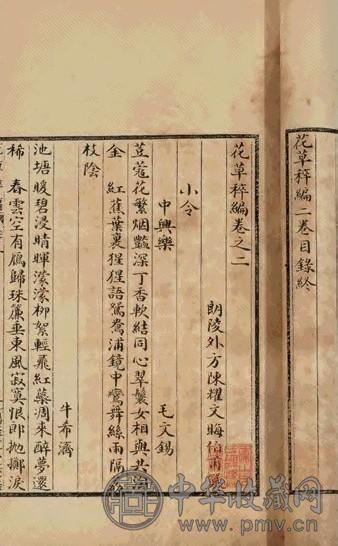 花草稡編二卷目錄終
花草稡編卷之二
朗陵外方陳耀文晦伯甫
小令
中興樂
毛文錫
荳蔻花繁烟豔深丁香軟結同心翠鬟女相與共
金 紅蕉葉裏猩猩語鴛鴦浦鏡中鸞舞絲雨隔
枝陰
牛希濟
池塘暖碧浸晴暉濛濛柳絮輕飛紅蘂凋來醉夢還
稀 春雲空有鴈歸珠簾垂東風寂寞恨郎抛擲淚
中华收藏网
www.pmv.cn